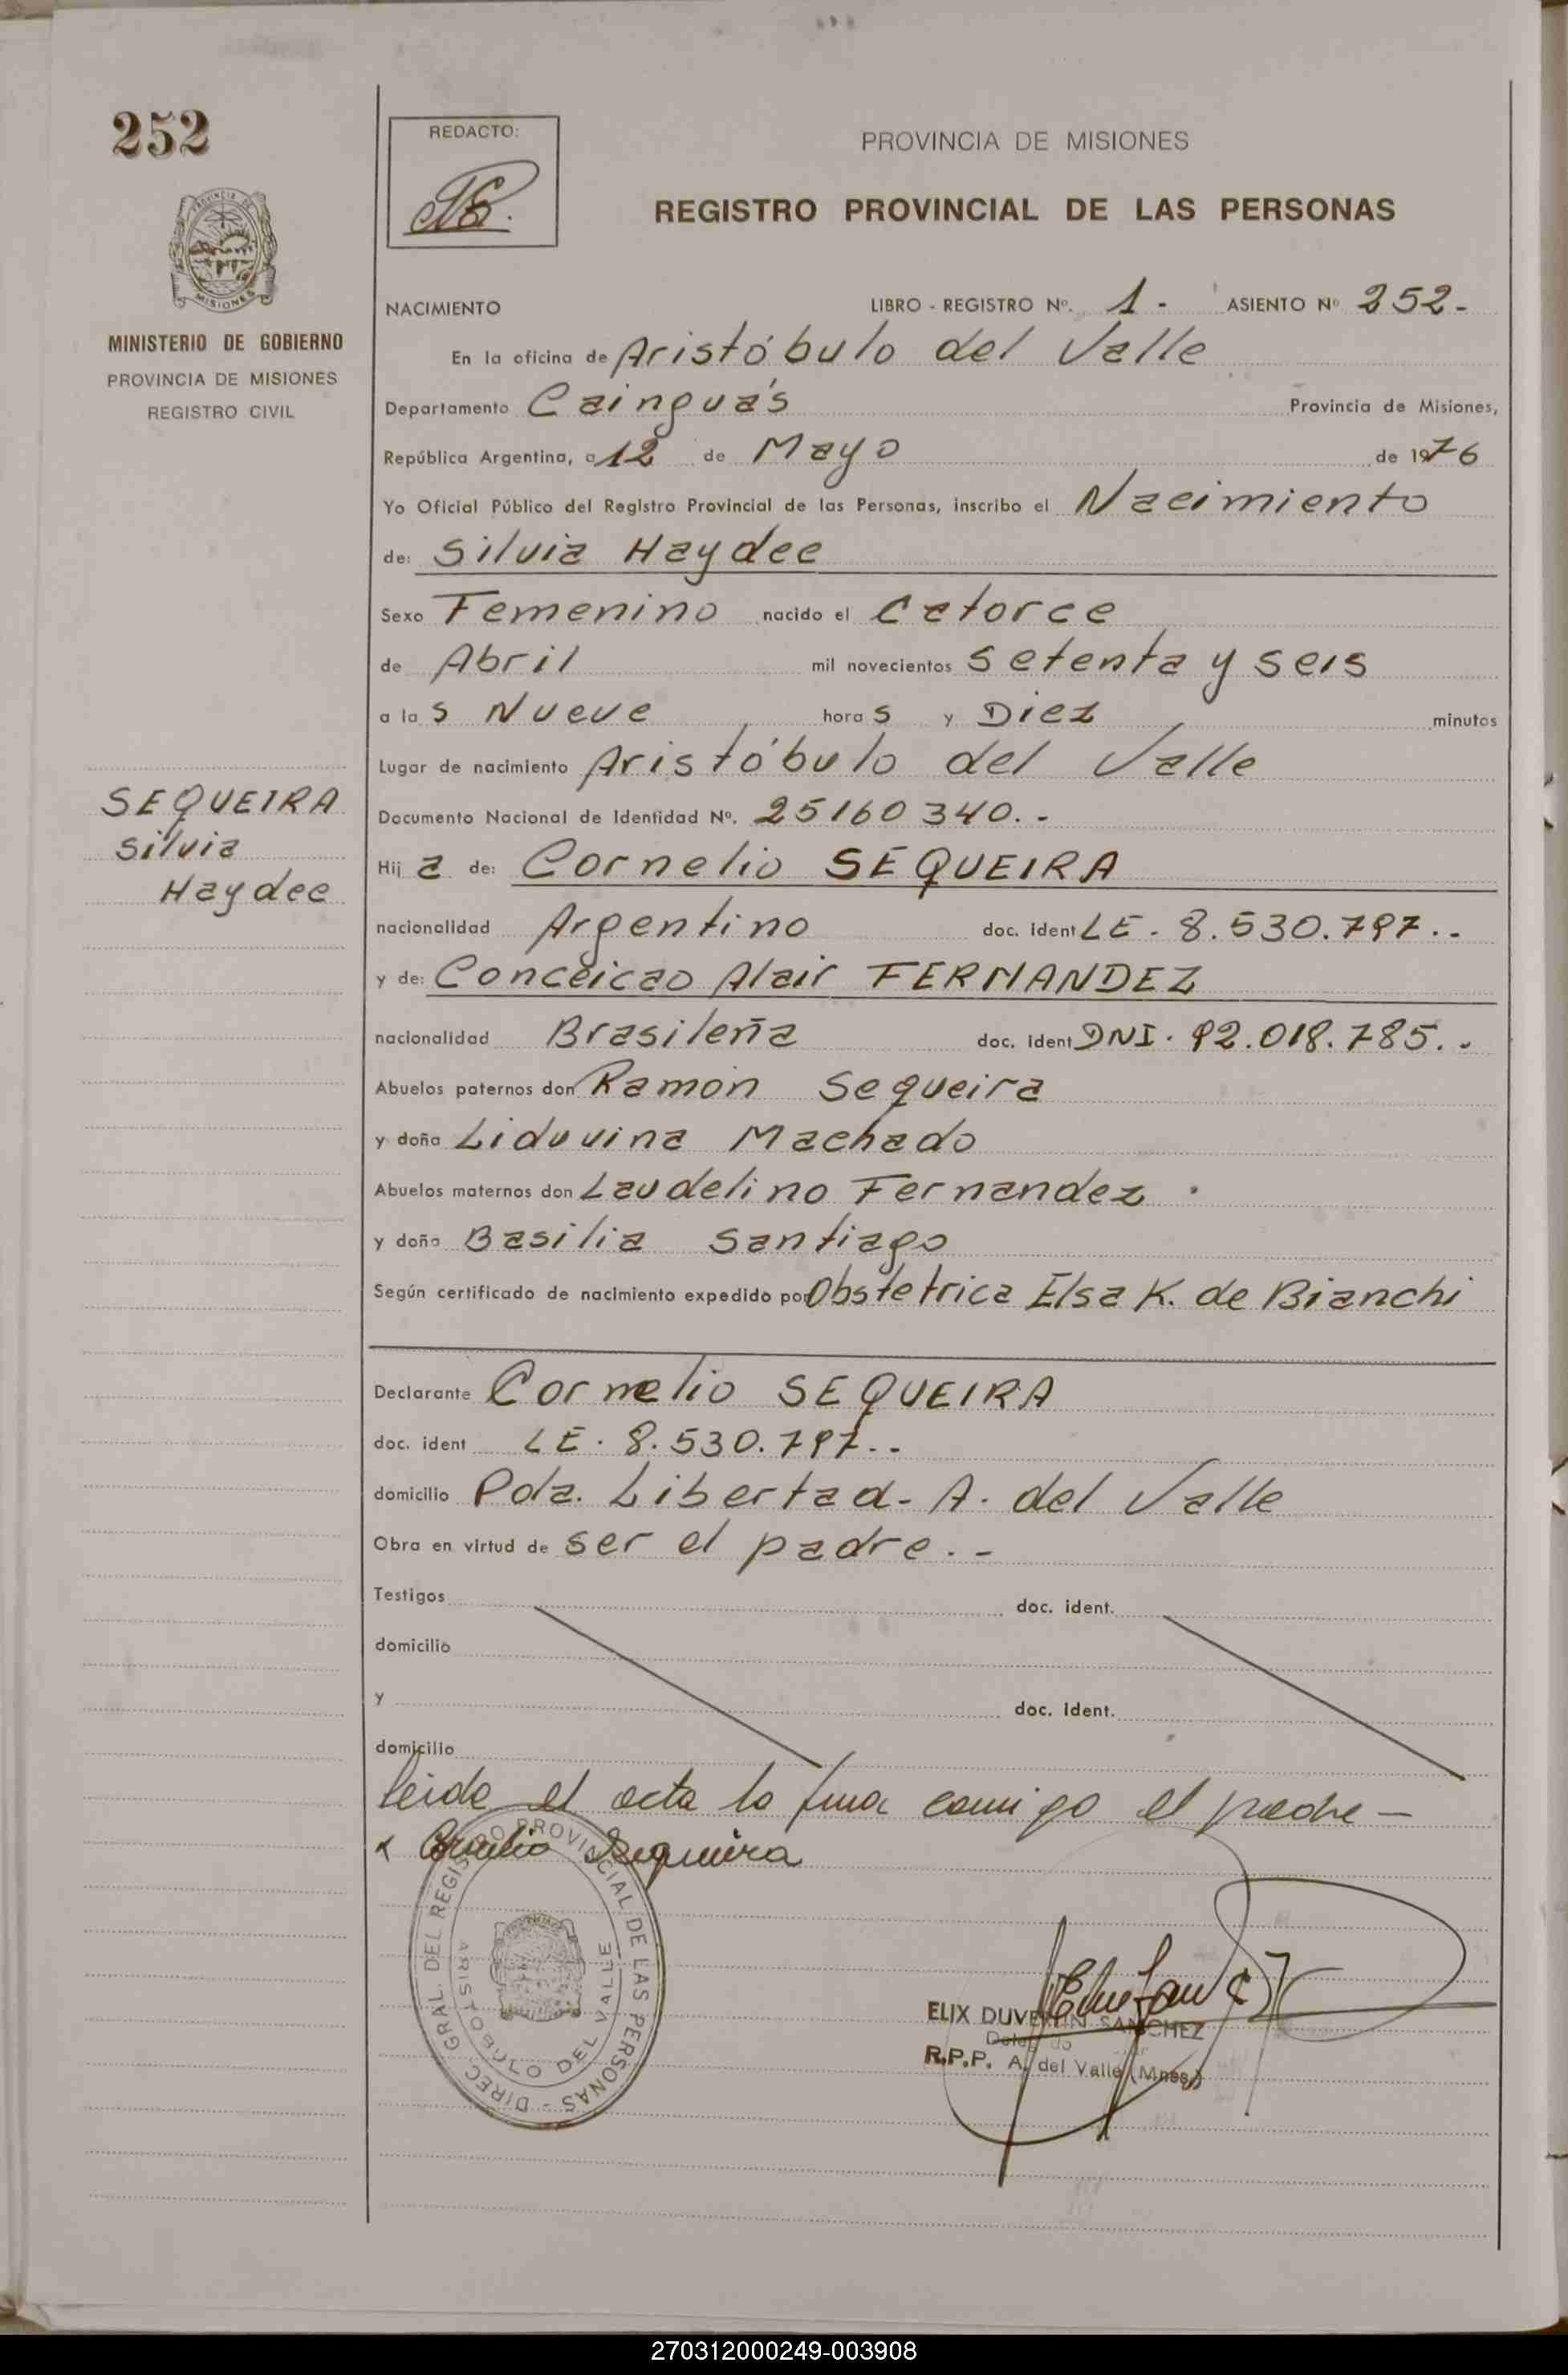 252
REDACTO:
PROVINCIA DE MISIONES
REGISTRO PROVINCIAL DE LAS PERSONAS
PROVINCIA DE
MISIONES
MINISTERIO DE GOBIERNO
PROVINCIA DE MISIONES
REGISTRO CIVIL
NACIMIENTO LIBRO - REGISTRO Nº. 1 - ASIENTO Nº 252-
En la oficina de Aristóbulo del Valle
Departamento Cainguás Provincia de Misiones,
República Argentina, a 12 de Mayo de 1976
Yo Oficial Público del Registro Provincial de las Personas, inscribo el Nacimiento
de: Silvia Haydee
Sexo Femenino nacido el Catorce
de Abril mil novecientos setenta y seis
a las Nueve horas y Diez minutos
Lugar de nacimiento Aristóbulo del Valle
Documento Nacional de Identidad Nº. 25160340.-
SEQUEIRA
Silvia
Haydee
Hija de: Cornelio SEQUEIRA
nacionalidad Argentino doc. ident LE - 8.530.797..
y de: Conceicao Alair FERNANDEZ
nacionalidad Brasileña doc. ident DNI. 92.018.785..
Abuelos paternos don Ramón Sequeira
y doña Liduvina Machado
Abuelos maternos don Laudelino Fernandez.
y doña Basilia Santiago
Según certificado de nacimiento expedido por Obstetrica Elsa K. de Bianchi
Declarante Cornelio SEQUEIRA
doc. ident LE. 8.530.797..
domicilio Pda. Libertad- A. del Valle
Obra en virtud de ser el padre.-
Testigos doc. ident.
domicilio
y doc. ident.
domicilio
Leida el acta la firma conmigo el padre-
x Cornelio Sequeira
DIREC. GRAL. DEL REGISTRO PROVINCIAL DE LAS PERSONAS -
ARISTOBULO DEL VALLE
ELIX SANCHEZ
R.P.P. A. del Valle (Mnes.)
270312000249-003908